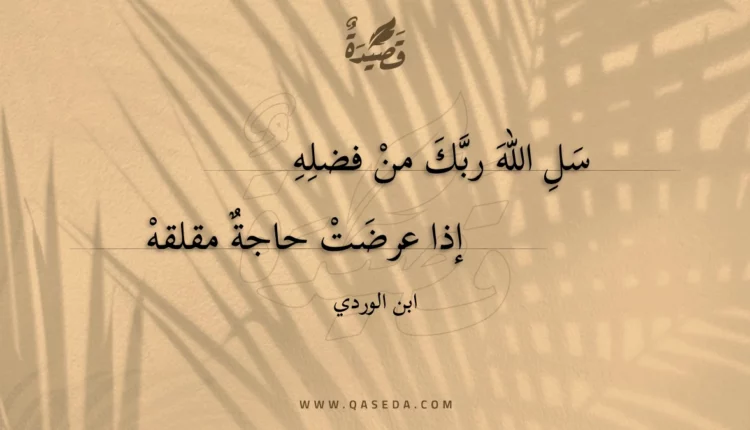 قَصِيْدَةٌ
سَلِ اللهَ ربَّكَ منْ فضلِهِ
إذا عرضَتْ حاجةٌ مقلقهْ
ابن الوردي
WWW.QASEDA.COM